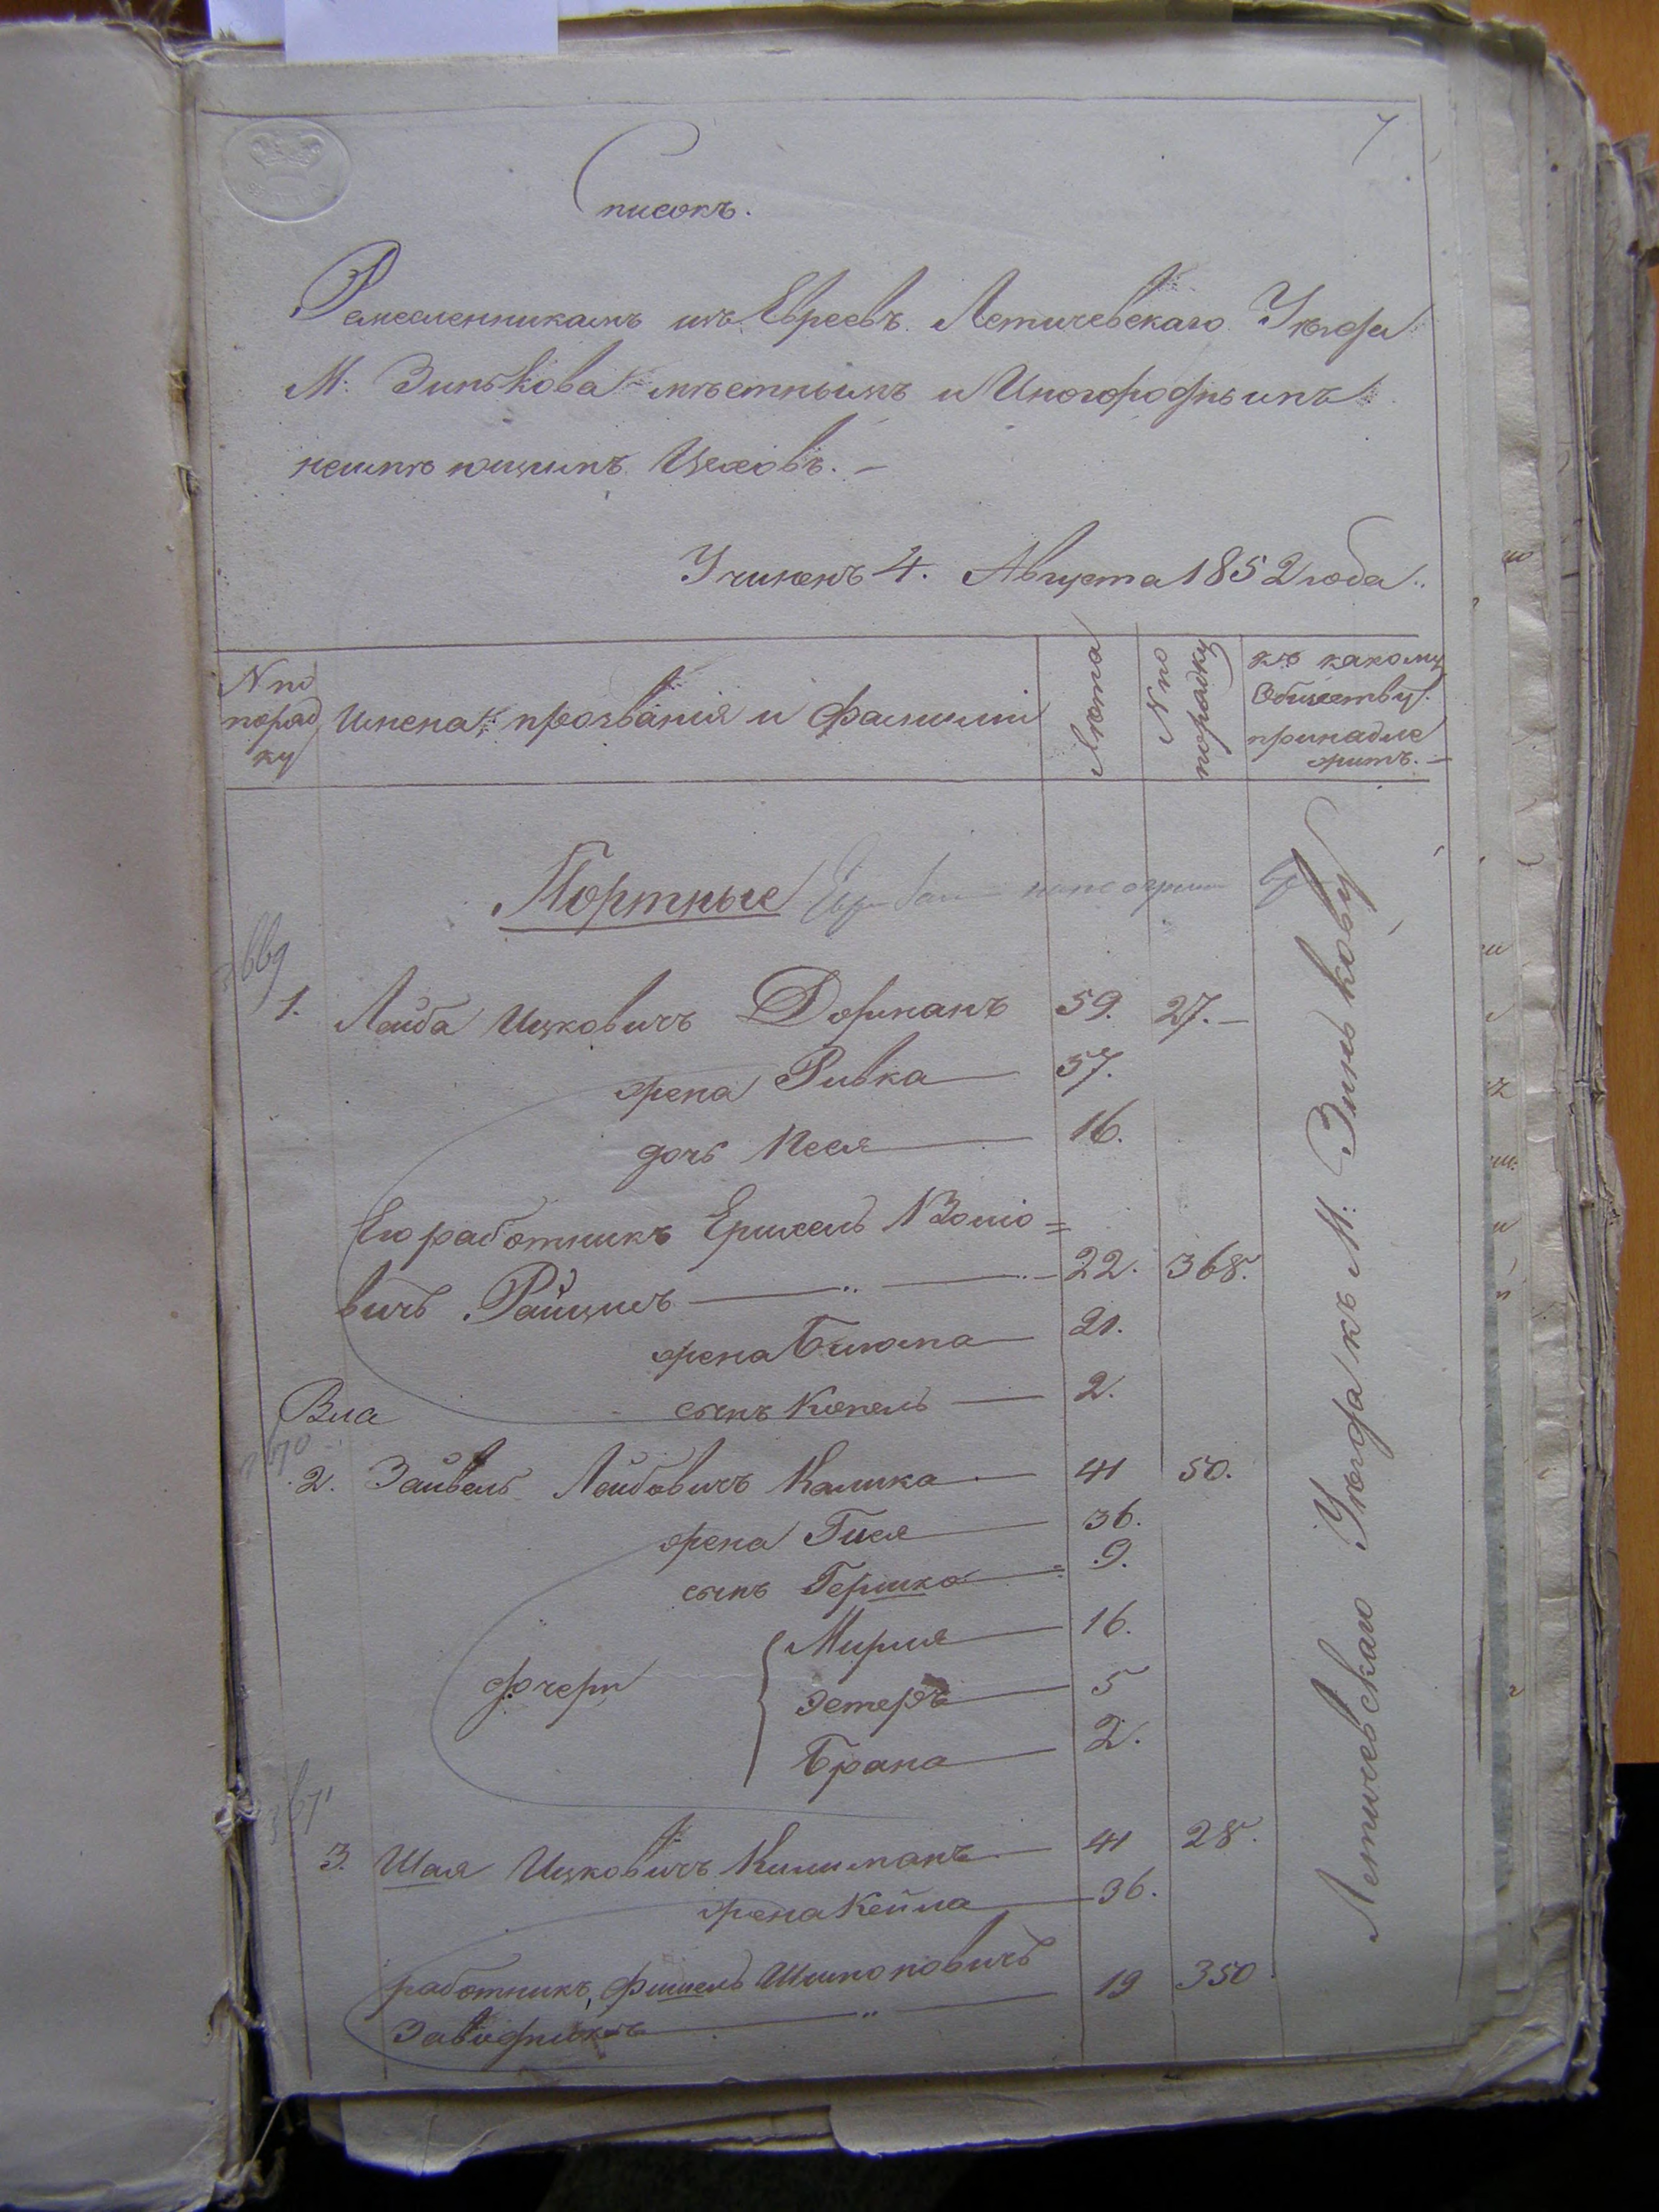 Списокъ.
Ремесленникамъ изъ Евреевъ Летичевскаго Уѣзда
М: Зинькова мѣстнымъ и Иногороднымъ
неимѣющимъ Цеховъ. –
Учиненъ 4. Августа 1852 года.
N по порядку
Имена, прозванія и фамиліи
Лѣта
N по порядку
къ какому
Обществу
принадле
житъ. –
Портные
1. Лейба Ицковичъ Дорманъ 59. 27. –
жена Ривка 57.
дочь Песя 16.
Его работникъ Ершель
вичъ 22. 368.
жена Блюма 21.
сынъ Копель 2.
2. Зайвель Лейбовичъ Калика 41 50.
жена Гися 36.
сынъ Гершко 9.
дочери Мирля 16.
Эстеръ 5
Брана 2.
3. Шая Ицковичъ 41 28.
жена Кейла 36.
работникъ, Фишель Шимоновичъ
Заводникъ 19 350.
Летичевскаго Уѣзда къ М: Зинькову